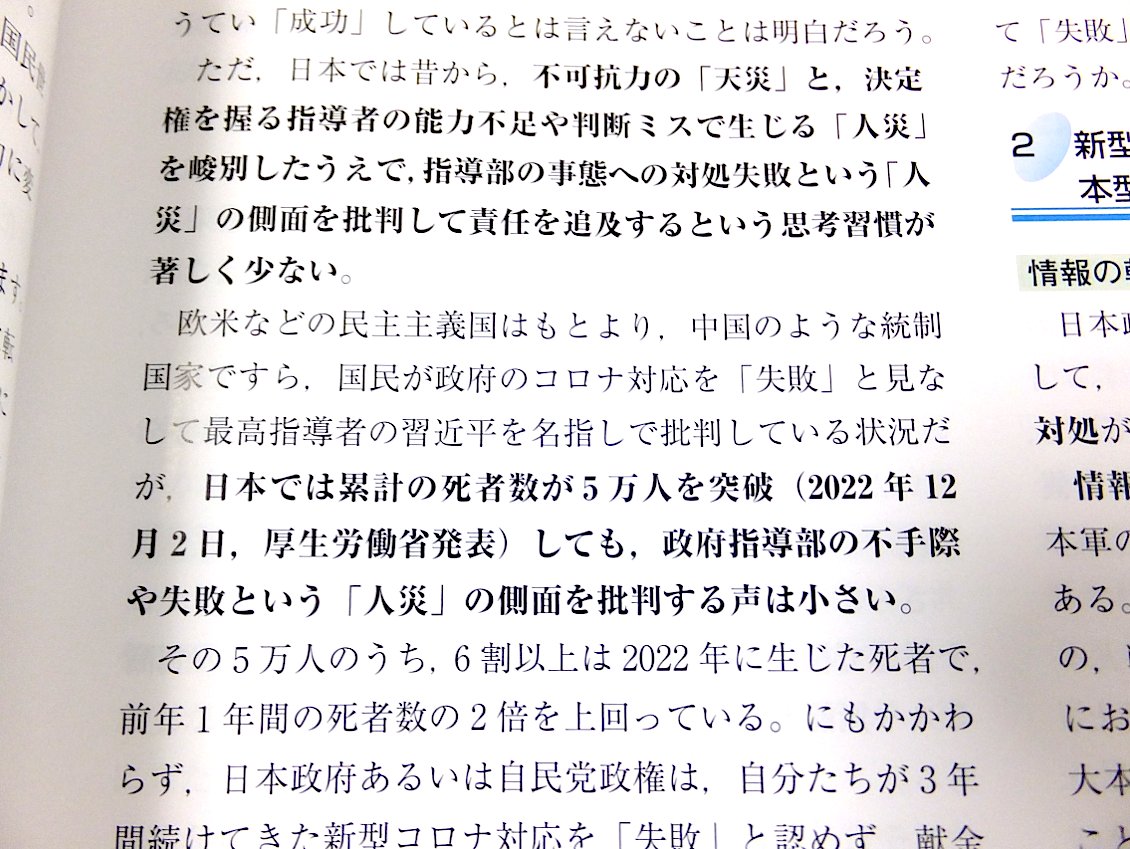 うてい「成功」しているとは言えないことは明白だろう。
ただ，日本では昔から，不可抗力の「天災」と，決定
権を握る指導者の能力不足や判断ミスで生じる「人災」
を峻別したうえで，指導部の事態への対処失敗という「人
災」の側面を批判して責任を追及するという思考習慣が
著しく少ない。
欧米などの民主主義国はもとより，中国のような統制
国家ですら，国民が政府のコロナ対応を「失敗」と見な
して最高指導者の習近平を名指しで批判している状況だ
が，日本では累計の死者数が5万人を突破（2022年12
月2日，厚生労働省発表）しても，政府指導部の不手際
や失敗という「人災」の側面を批判する声は小さい。
その5万人のうち，6割以上は2022年に生じた死者で，
前年1年間の死者数の2倍を上回っている。にもかかわ
らず，日本政府あるいは自民党政権は，自分たちが3年
間続けてきた新型コロナ対応を「失敗」と認めず，献金
て「失敗」
だろうか。
2 新型
本型
情報の
日本政
して，
対処が
情報
本軍の
ある。
の，
にお
大本
こと